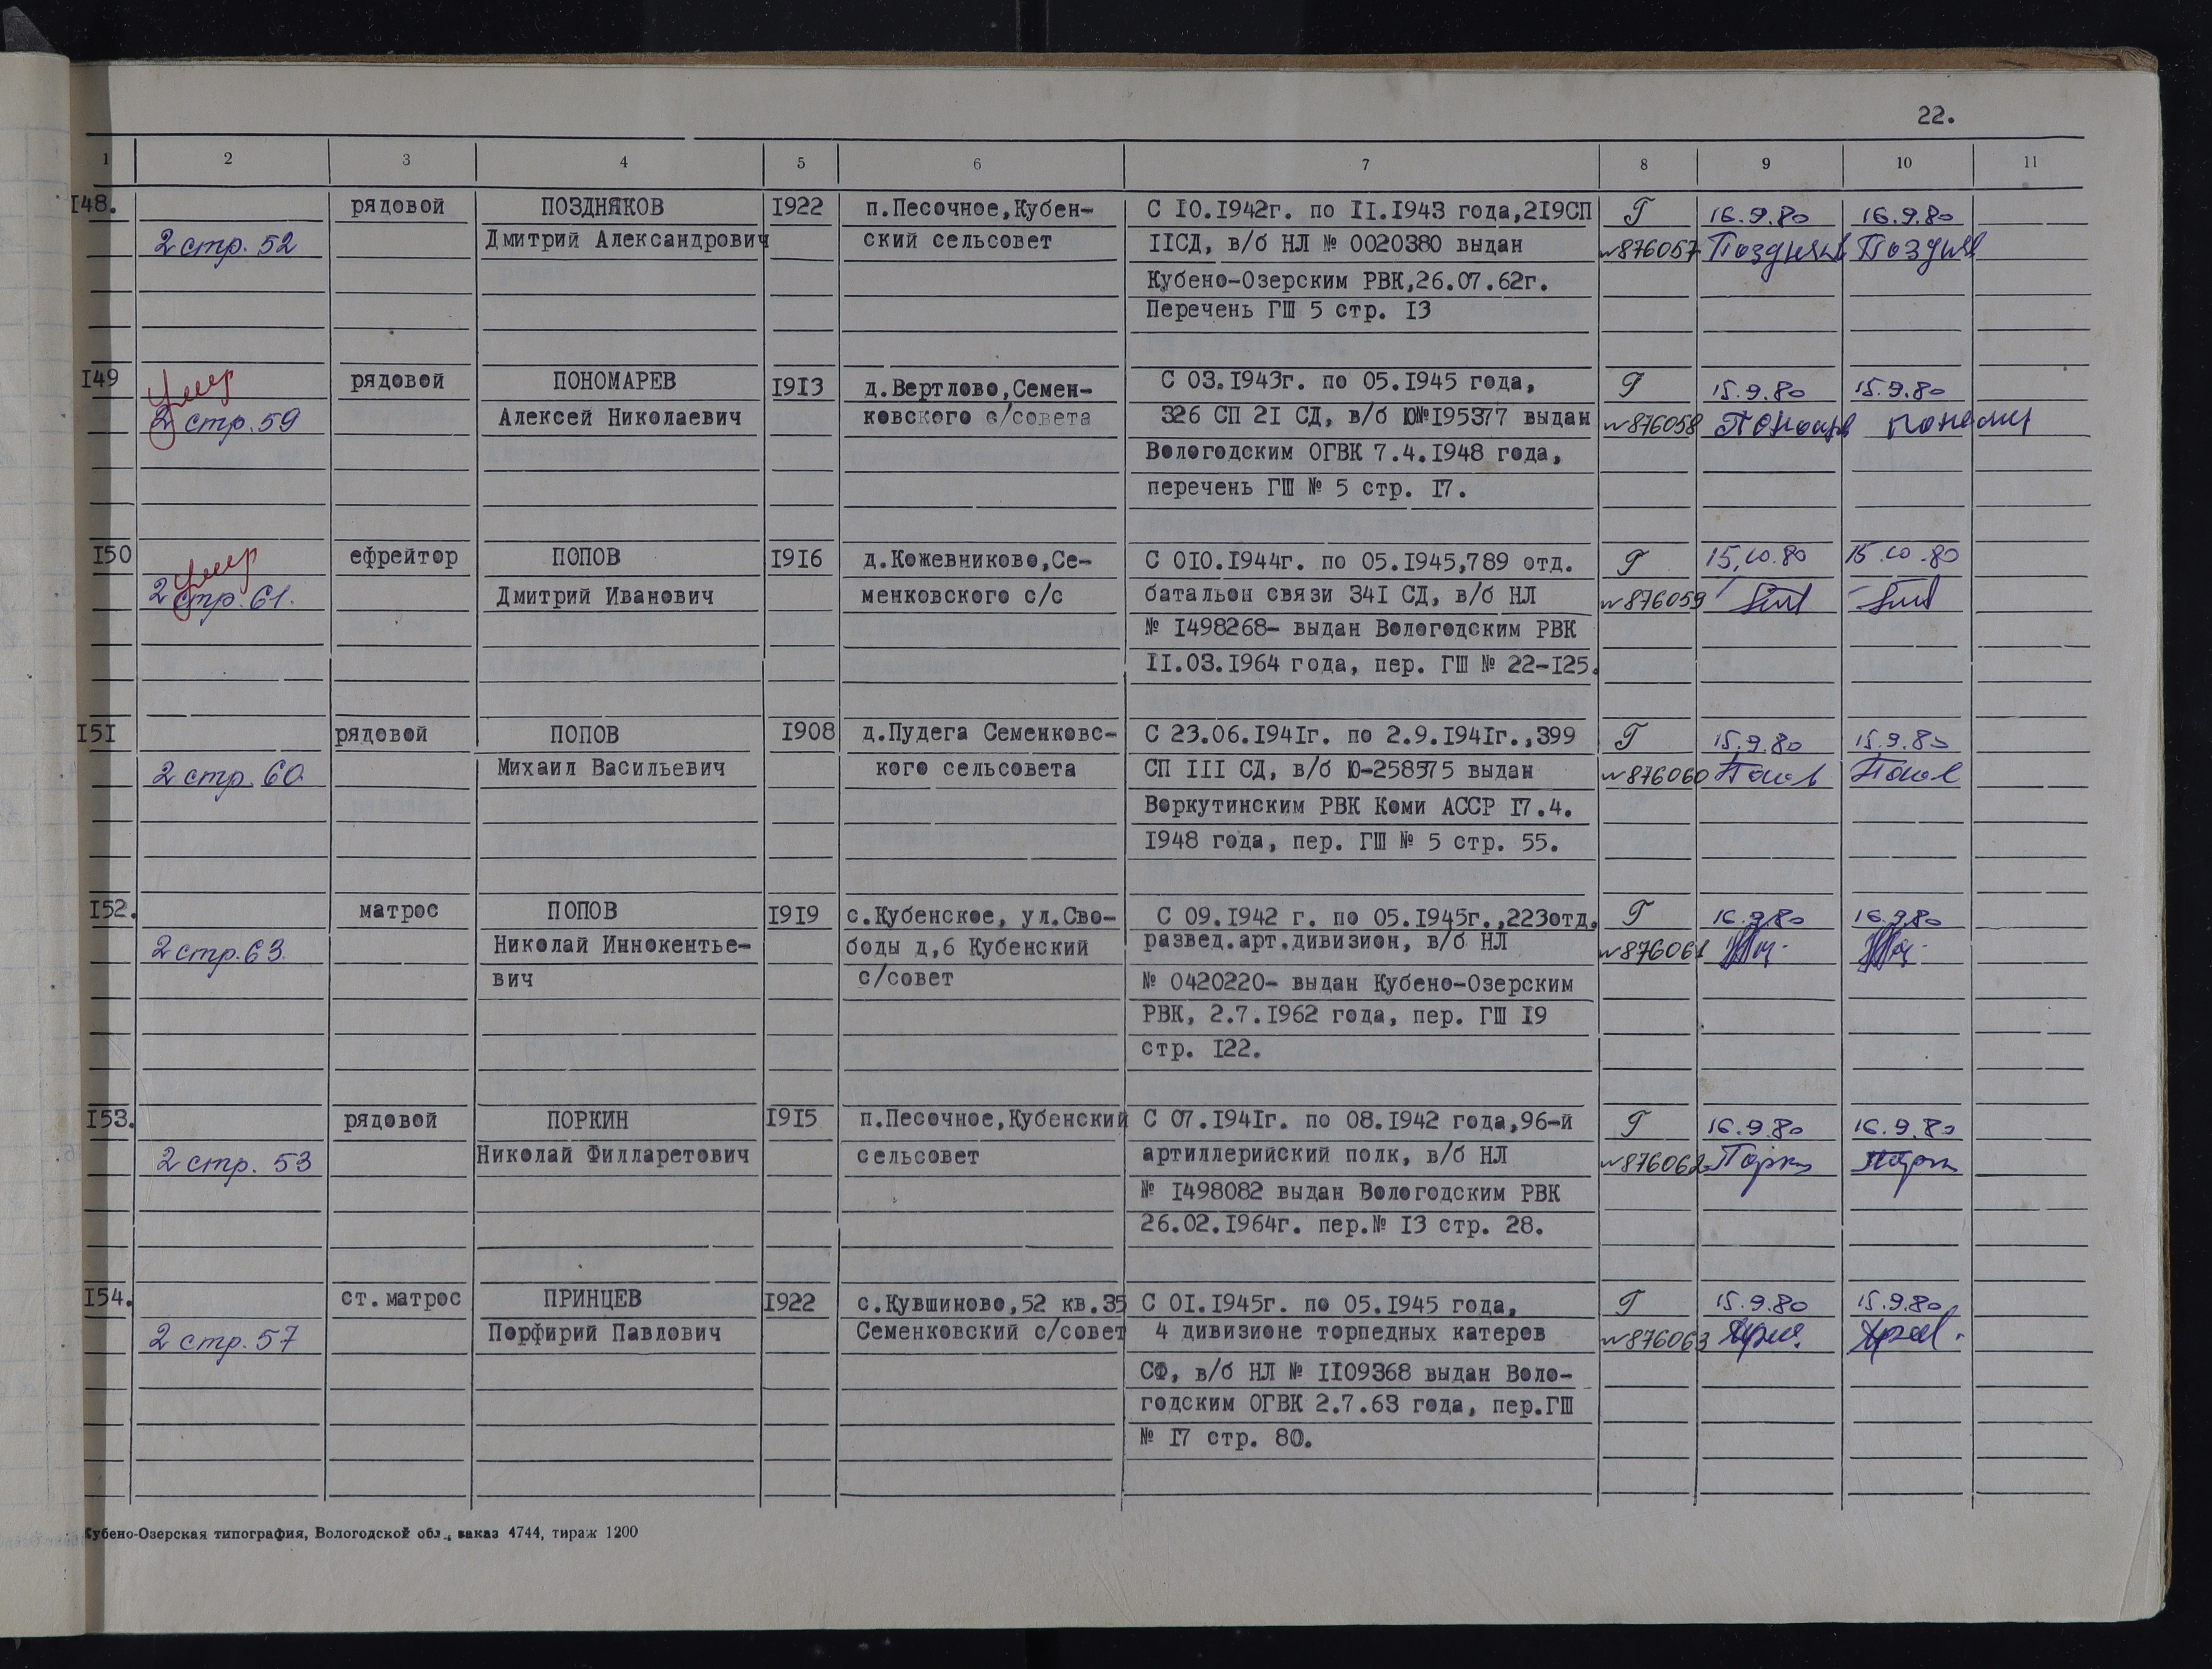 22.
1 2 3 4 5 6 7 8 9 10 11
I48. рядовой ПОЗДНЯКОВ I922 п.Песочное,Кубен- С I0.I942г. по II.I943 года,2I9СП Г 16.9.80 16.9.80
2 стр. 52 Дмитрий Александрович ский сельсовет IIСД, в/б НЛ № 0020380 выдан №876057
Кубено-Озерским РВК,26.07.62г.
Перечень ГШ 5 стр. I3
I49 умер рядовой ПОНОМАРЕВ I9I3 д.Вертлово,Семен- С 03.I943г. по 05.I945 года, Г 15.9.80 15.9.80
2 стр. 59 Алексей Николаевич ковского с/совета 326 СП 2I СД, в/б Ю№I95377 выдан №876058
Вологодским ОГВК 7.4.I948 года,
перечень ГШ № 5 стр. I7.
I50 умер ефрейтор ПОПОВ I9I6 д.Кожевниково,Се- С 0I0.I944г. по 05.I945,789 отд. Г 15.10.80 15.10.80
2 стр. 61. Дмитрий Иванович менковского с/с батальон связи 34I СД, в/б НЛ №876059
№ I498268- выдан Вологодским РВК
II.03.I964 года, пер. ГШ № 22-I25.
I5I рядовой ПОПОВ I908 д.Пудега Семенковс- С 23.06.I94Iг. по 2.9.I94Iг.,399 Г 15.9.80 15.9.80
2 стр. 60. Михаил Васильевич кого сельсовета СП III СД, в/б Ю-258575 выдан №876060
Воркутинским РВК Коми АССР I7.4.
I948 года, пер. ГШ № 5 стр. 55.
I52. матрос ПОПОВ I9I9 с.Кубенское, ул.Сво- С 09.I942 г. по 05.I945г.,223отд. Г 16.9.80 16.9.80
2 стр. 63. Николай Иннокентье- боды д,6 Кубенский развед.арт.дивизион, в/б НЛ №876061
вич с/совет № 0420220- выдан Кубено-Озерским
РВК, 2.7.I962 года, пер. ГШ I9
стр. I22.
I53. рядовой ПОРКИН I9I5 п.Песочное,Кубенский С 07.I94Iг. по 08.I942 года,96-й Г 16.9.80 16.9.80
2 стр. 53 Николай Филларетович сельсовет артиллерийский полк, в/б НЛ №876062
№ I498082 выдан Вологодским РВК
26.02.I964г. пер.№ I3 стр. 28.
I54. ст.матрос ПРИНЦЕВ I922 с.Кувшиново,52 кв.35 С 0I.I945г. по 05.I945 года, Г 15.9.80 15.9.80
2 стр. 57 Порфирий Павлович Семенковский с/совет 4 дивизионе торпедных катеров №876063
СФ, в/б НЛ № II09368 выдан Воло-
годским ОГВК 2.7.63 года, пер.ГШ
№ I7 стр. 80.
Кубено-Озерская типография, Вологодской обл., заказ 4744, тираж 1200